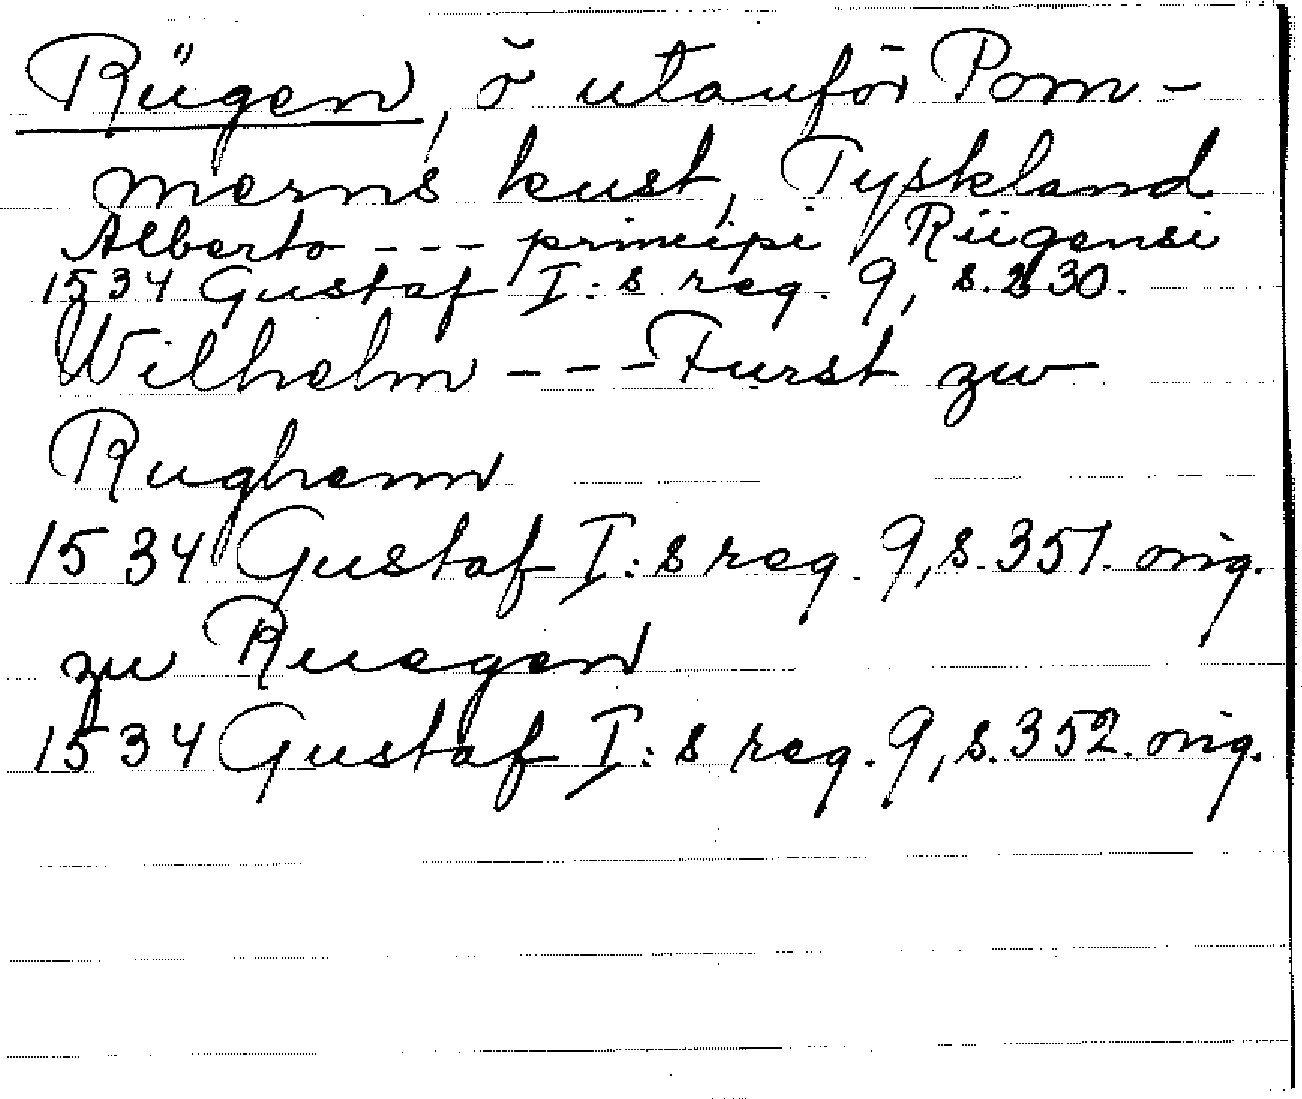 Rügen, ö utanför Pom-
merns kust, Tyskland
Alberto --- principi Rügensi
1534 Gustaf I:s reg. 9, s. 330.
Wilhelm --- Furst zw
Rughenn
1534 Gustaf I:s reg. 9, s. 351. orig.
zu Ruegen
1534 Gustaf I:s reg. 9, s. 352. orig.